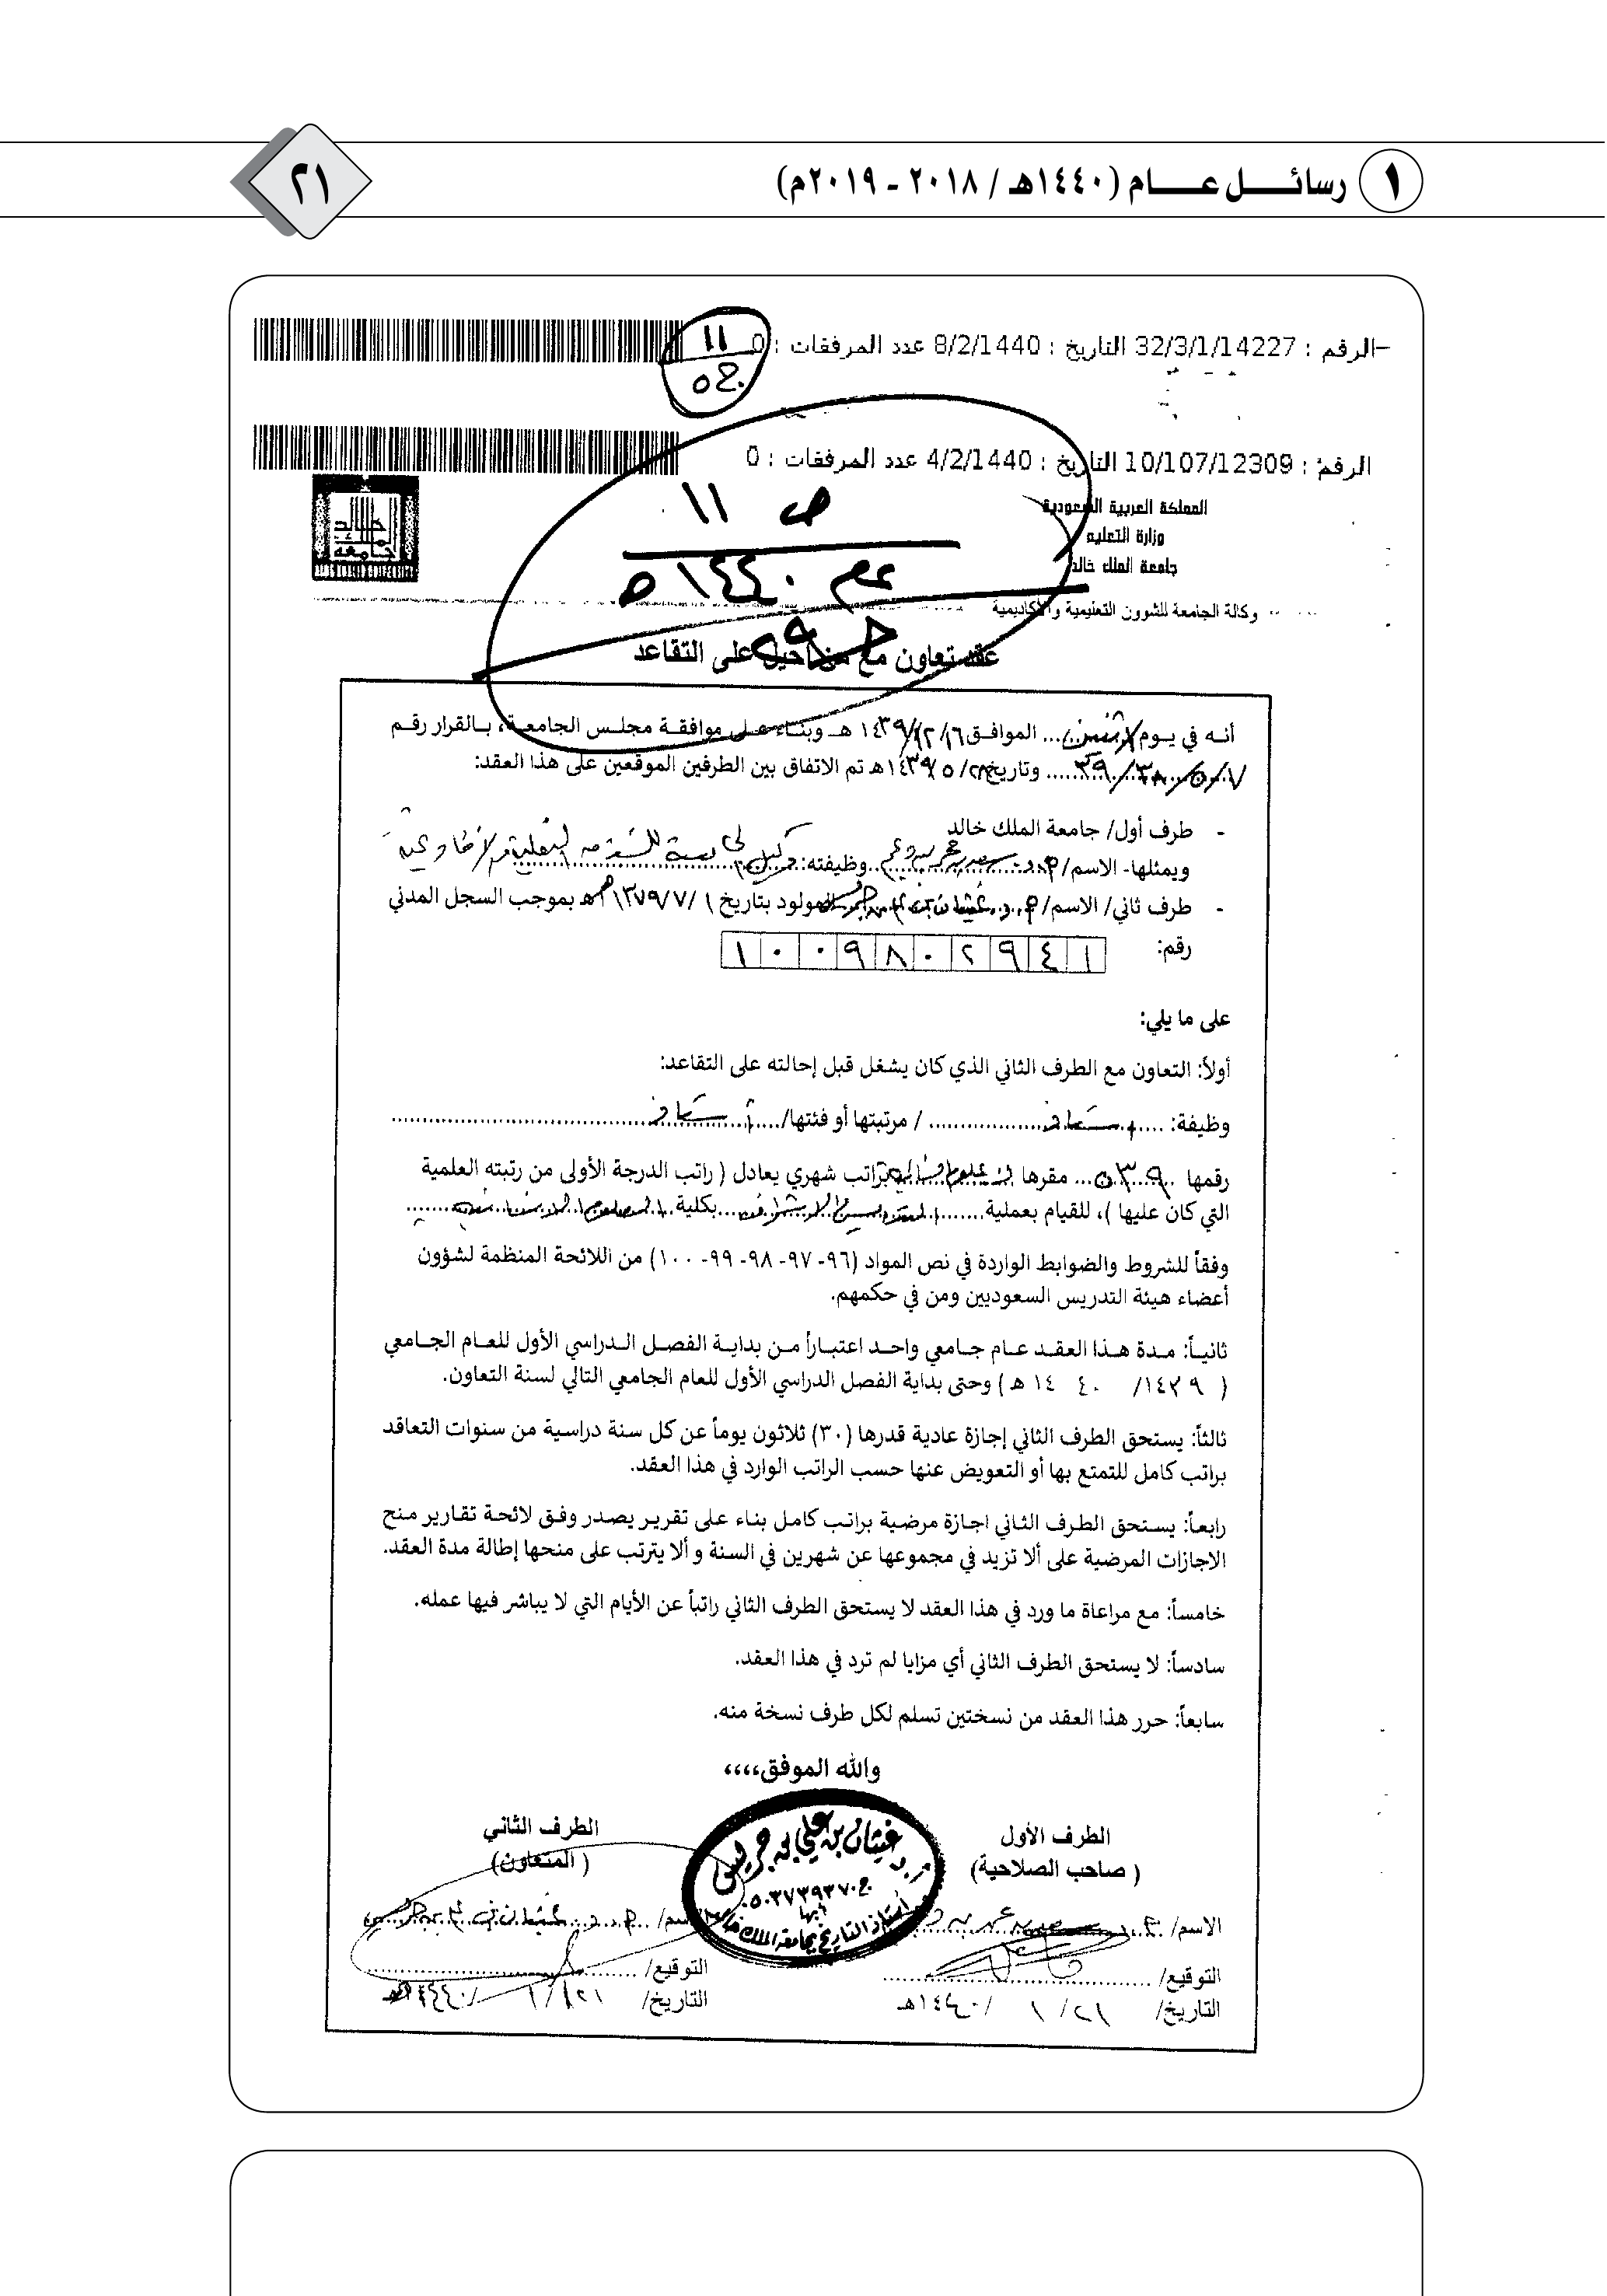 ١ رسائل عام (١٤٤٠هـ / ٢٠١٨ - ٢٠١٩م)
٢١
الرقم : 32/3/1/14227 التاريخ : 8/2/1440 عدد المرفقات : 0
١١
ج٥
الرقم : 10/107/12309 التاريخ : 4/2/1440 عدد المرفقات : 0
ص ١١
١٤٤٠هـ
المملكة العربية السعودية
وزارة التعليم
جامعة الملك خالد
جامعة الملك خالد
وكالة الجامعة للشؤون التعليمية والأكاديمية
عقد تعاون مع من أحيل على التقاعد
أنه في يوم الاثنين الموافق ١٦/١٢/١٤٣٩ هـ وبناء على موافقة مجلس الجامعة، بالقرار رقم
٧/٥/٣٨/٣٩ وتاريخ ٢٨/٥/١٤٣٩هـ تم الاتفاق بين الطرفين الموقعين على هذا العقد:
- طرف أول/ جامعة الملك خالد
ويمثلها- الاسم/ أ.د. سعد وظيفته: وكيل الجامعة للشؤون التعليمية والأكاديمية
- طرف ثاني/ الاسم/ أ.د. غيثان بن علي بن جريس المولود بتاريخ ١/٧/١٣٧٩هـ بموجب السجل المدني
رقم: ١٠٠٩٨٠٢٩٤١
على ما يلي:
أولاً: التعاون مع الطرف الثاني الذي كان يشغل قبل إحالته على التقاعد:
وظيفة: أستاذ / مرتبتها أو فئتها/ أستاذ
رقمها ٥٣٩ مقرها براتب شهري يعادل ( راتب الدرجة الأولى من رتبته العلمية
التي كان عليها )، للقيام بعملية التدريس والإشراف بكلية العلوم الإنسانية
وفقاً للشروط والضوابط الواردة في نص المواد (٩٦- ٩٧- ٩٨- ٩٩- ١٠٠) من اللائحة المنظمة لشؤون
أعضاء هيئة التدريس السعوديين ومن في حكمهم.
ثانياً: مدة هذا العقد عام جامعي واحد اعتباراً من بداية الفصل الدراسي الأول للعام الجامعي
( ١٤٣٩/ ١٤٤٠ هـ ) وحتى بداية الفصل الدراسي الأول للعام الجامعي التالي لسنة التعاون.
ثالثاً: يستحق الطرف الثاني إجازة عادية قدرها (٣٠) ثلاثون يوماً عن كل سنة دراسية من سنوات التعاقد
براتب كامل للتمتع بها أو التعويض عنها حسب الراتب الوارد في هذا العقد.
رابعاً: يستحق الطرف الثاني اجازة مرضية براتب كامل بناء على تقرير يصدر وفق لائحة تقارير منح
الاجازات المرضية على ألا تزيد في مجموعها عن شهرين في السنة و ألا يترتب على منحها إطالة مدة العقد.
خامساً: مع مراعاة ما ورد في هذا العقد لا يستحق الطرف الثاني راتباً عن الأيام التي لا يباشر فيها عمله.
سادساً: لا يستحق الطرف الثاني أي مزايا لم ترد في هذا العقد.
سابعاً: حرر هذا العقد من نسختين تسلم لكل طرف نسخة منه.
والله الموفق،،،،
الطرف الأول
( صاحب الصلاحية)
الاسم/ أ.د. سعد
التوقيع/
التاريخ/ ٢١/ ١ /١٤٤٠هـ
أ.د. غيثان بن علي بن جريس
ج ٠٥٠٣٧٣٩٣٧٠
أبها
أستاذ التاريخ بجامعة الملك خالد
الطرف الثاني
( المتعاون)
الاسم/ أ.د. غيثان بن علي بن جريس
التوقيع/
التاريخ/ ٢١/ ١ /١٤٤٠هـ